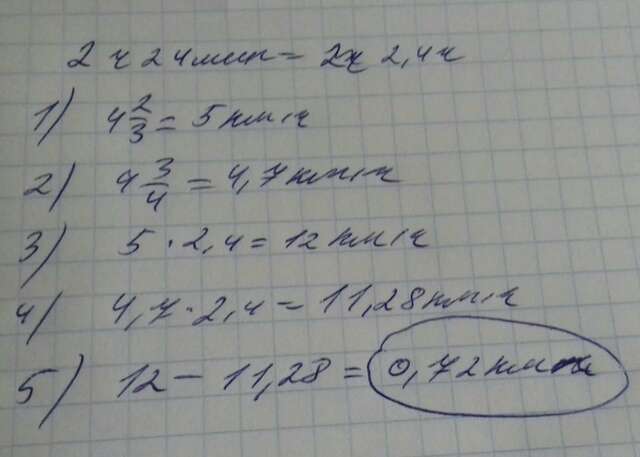 2 ч 24 мин = 2ч 2,4ч
1) 4 2/3 = 5 км/ч
2) 4 3/4 = 4,7 км/ч
3) 5 · 2,4 = 12 км/ч
4) 4,7 · 2,4 = 11,28 км/ч
5) 12 - 11,28 = 0,72 км